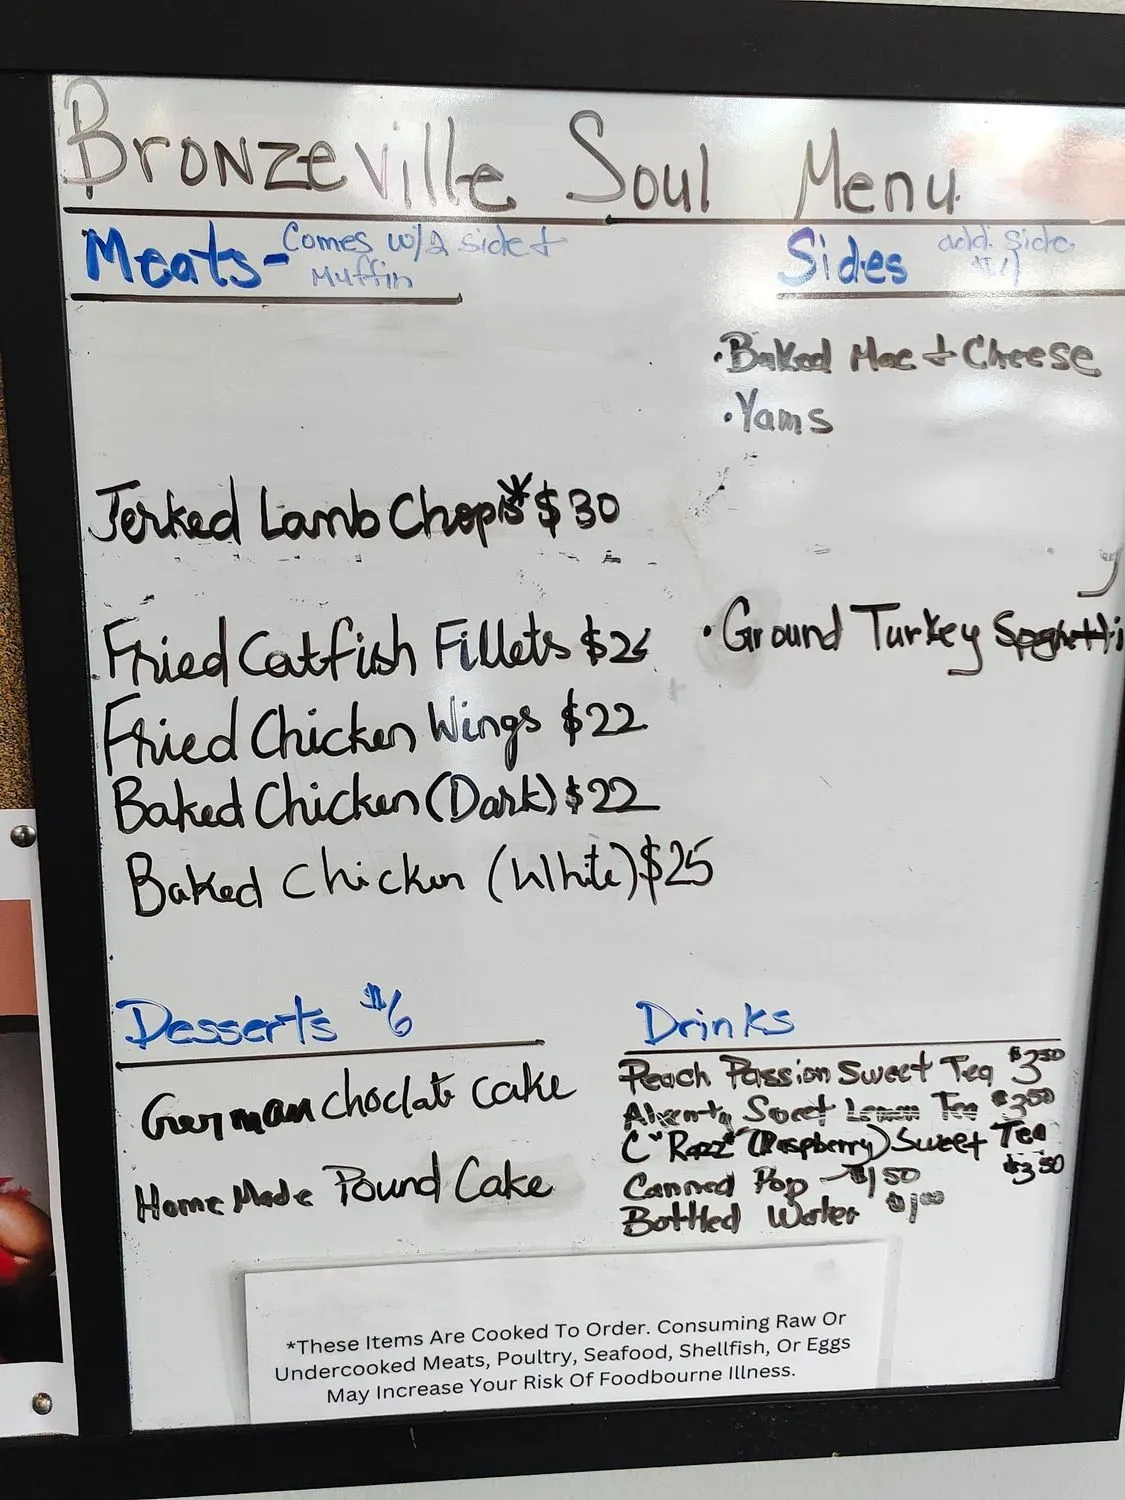 Bronzeville Soul Menu
Meats - Comes w/2 side +
Muffin
Sides add. side
Baked Mac + Cheese
Yams
Jerked Lamb Chops* $30
Ground Turkey Spghetti
Fried Catfish Fillets
Fried Chicken Wings $22
Baked Chicken (Dark) $22
Baked Chicken (White) $25
Desserts $6
German choclate cake
Home Made Pound Cake
Drinks
Peach Passion Sweet Tea $3.50
Sweet Lemon Tea $3.50
C "Razz" (Raspberry) Sweet Tea
$3.50
Canned Pop - $1.50
Bottled Water $1.00
*These Items Are Cooked To Order. Consuming Raw Or
Undercooked Meats, Poultry, Seafood, Shellfish, Or Eggs
May Increase Your Risk Of Foodbourne Illness.